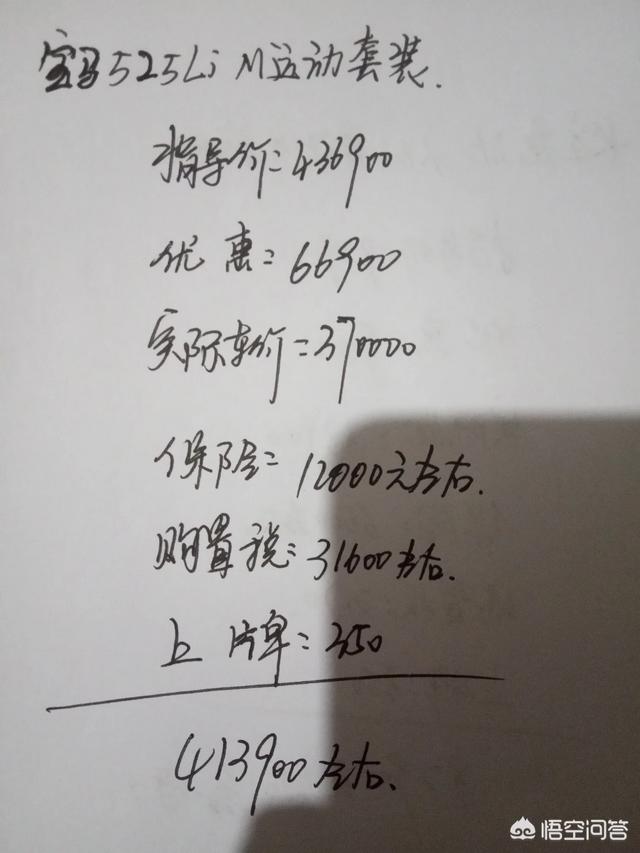 宝马525Li M运动套装.
指导价=436900
优惠=66900
实际车价=370000
保险=12000元左右.
购置税:31600左右.
上牌:350
413900左右.
悟空问答